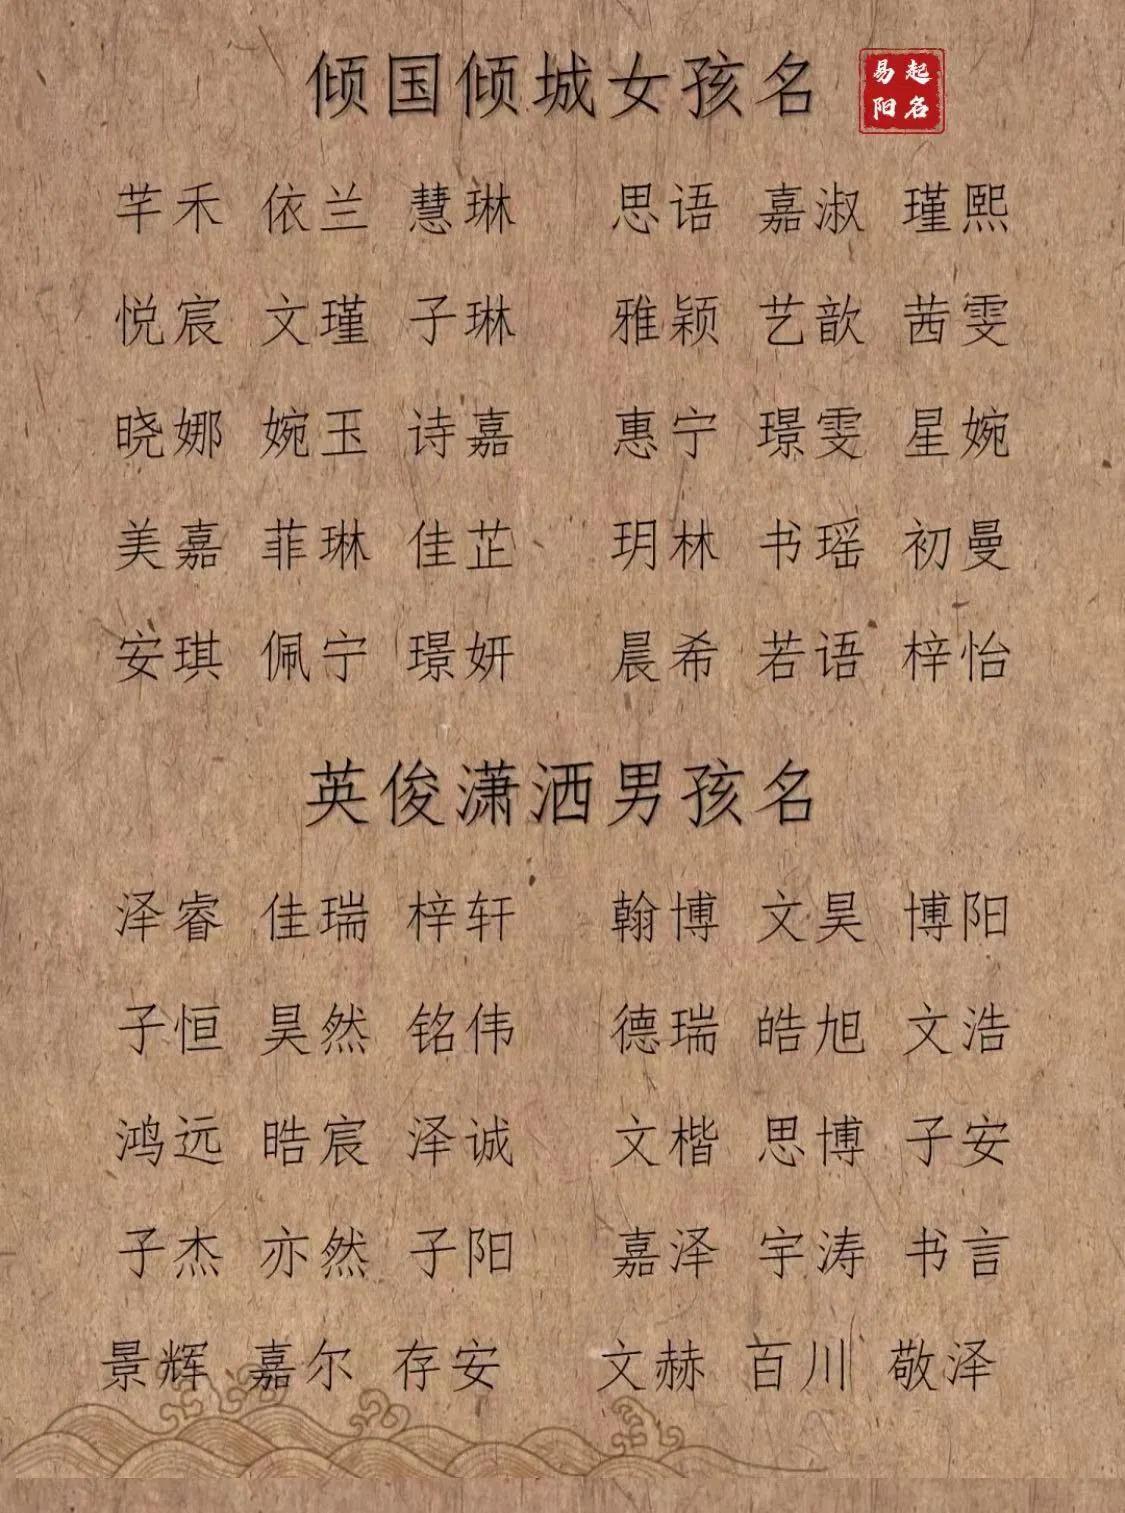 倾国倾城女孩名
易起
阳名
芊禾 依兰 慧琳 思语 嘉淑 瑾熙
悦宸 文瑾 子琳 雅颖 艺歆 茜雯
晓娜 婉玉 诗嘉 惠宁 璟雯 星婉
美嘉 菲琳 佳芷 玥林 书瑶 初曼
安琪 佩宁 璟妍 晨希 若语 梓怡
英俊潇洒男孩名
泽睿 佳瑞 梓轩 翰博 文昊 博阳
子恒 昊然 铭伟 德瑞 皓旭 文浩
鸿远 晧宸 泽诚 文楷 思博 子安
子杰 亦然 子阳 嘉泽 宇涛 书言
景辉 嘉尔 存安 文赫 百川 敬泽